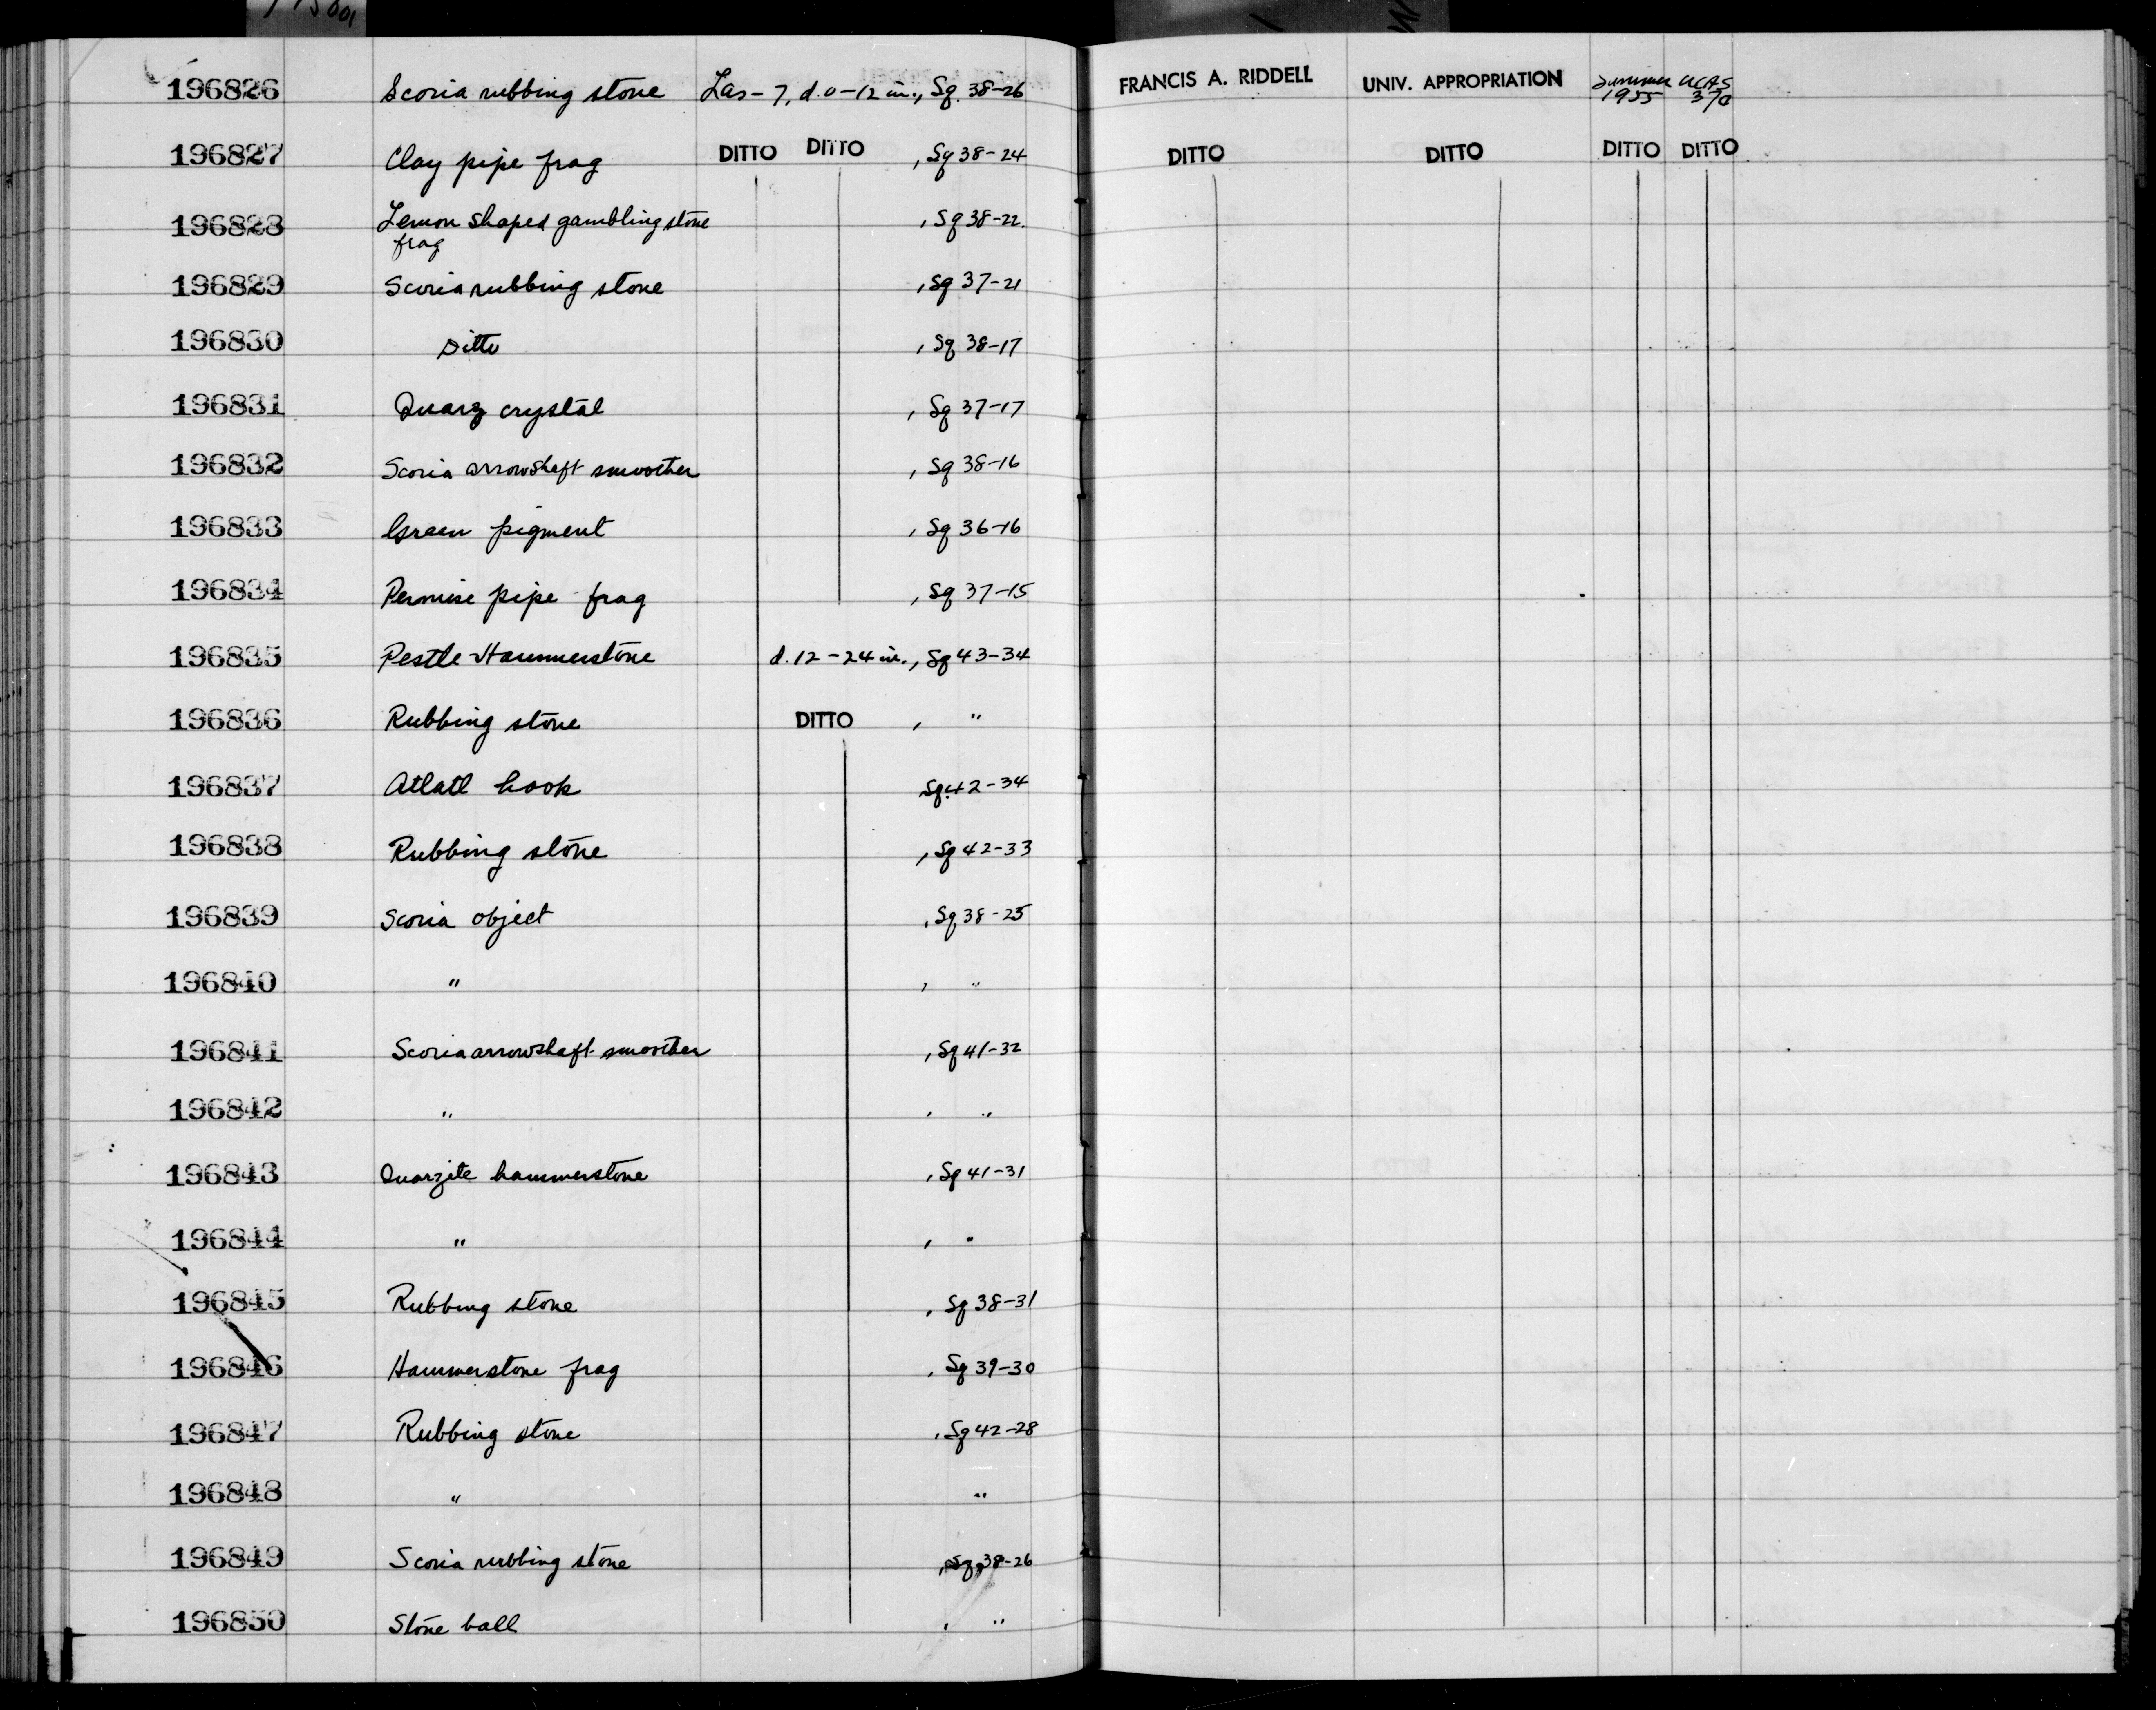 196826 Scoria rubbing stone Las-7, d. 0-12 in., Sq. 38-26 FRANCIS A. RIDDELL UNIV. APPROPRIATION Summer 1955 UCAS 37a
196827 Clay pipe frag DITTO DITTO , Sq 38-24 DITTO DITTO DITTO DITTO
196828 Lemon shaped gambling stone , Sq 38-22.
frag
196829 Scoria rubbing stone , Sq 37-21
196830 Ditto , Sq 38-17
196831 Quarz crystal , Sq 37-17
196832 Scoria arrowshaft smoother , Sq 38-16
196833 Green pigment , Sq 36-16
196834 Permise pipe frag , Sq 37-15
196835 Pestle-Hammerstone d. 12-24 in., Sq 43-34
196836 Rubbing stone DITTO , "
196837 Atlatl hook , Sq. 42-34
196838 Rubbing stone , Sq 42-33
196839 Scoria object , Sq 38-25
196840 " , "
196841 Scoria arrowshaft smoother , Sq 41-32
196842 " , "
196843 Quarzite hammerstone , Sq 41-31
196844 " , "
196845 Rubbing stone , Sq 38-31
196846 Hammerstone frag , Sq 39-30
196847 Rubbing stone , Sq 42-28
196848 " "
196849 Scoria rubbing stone , Sq. 38-26
196850 Stone ball , "